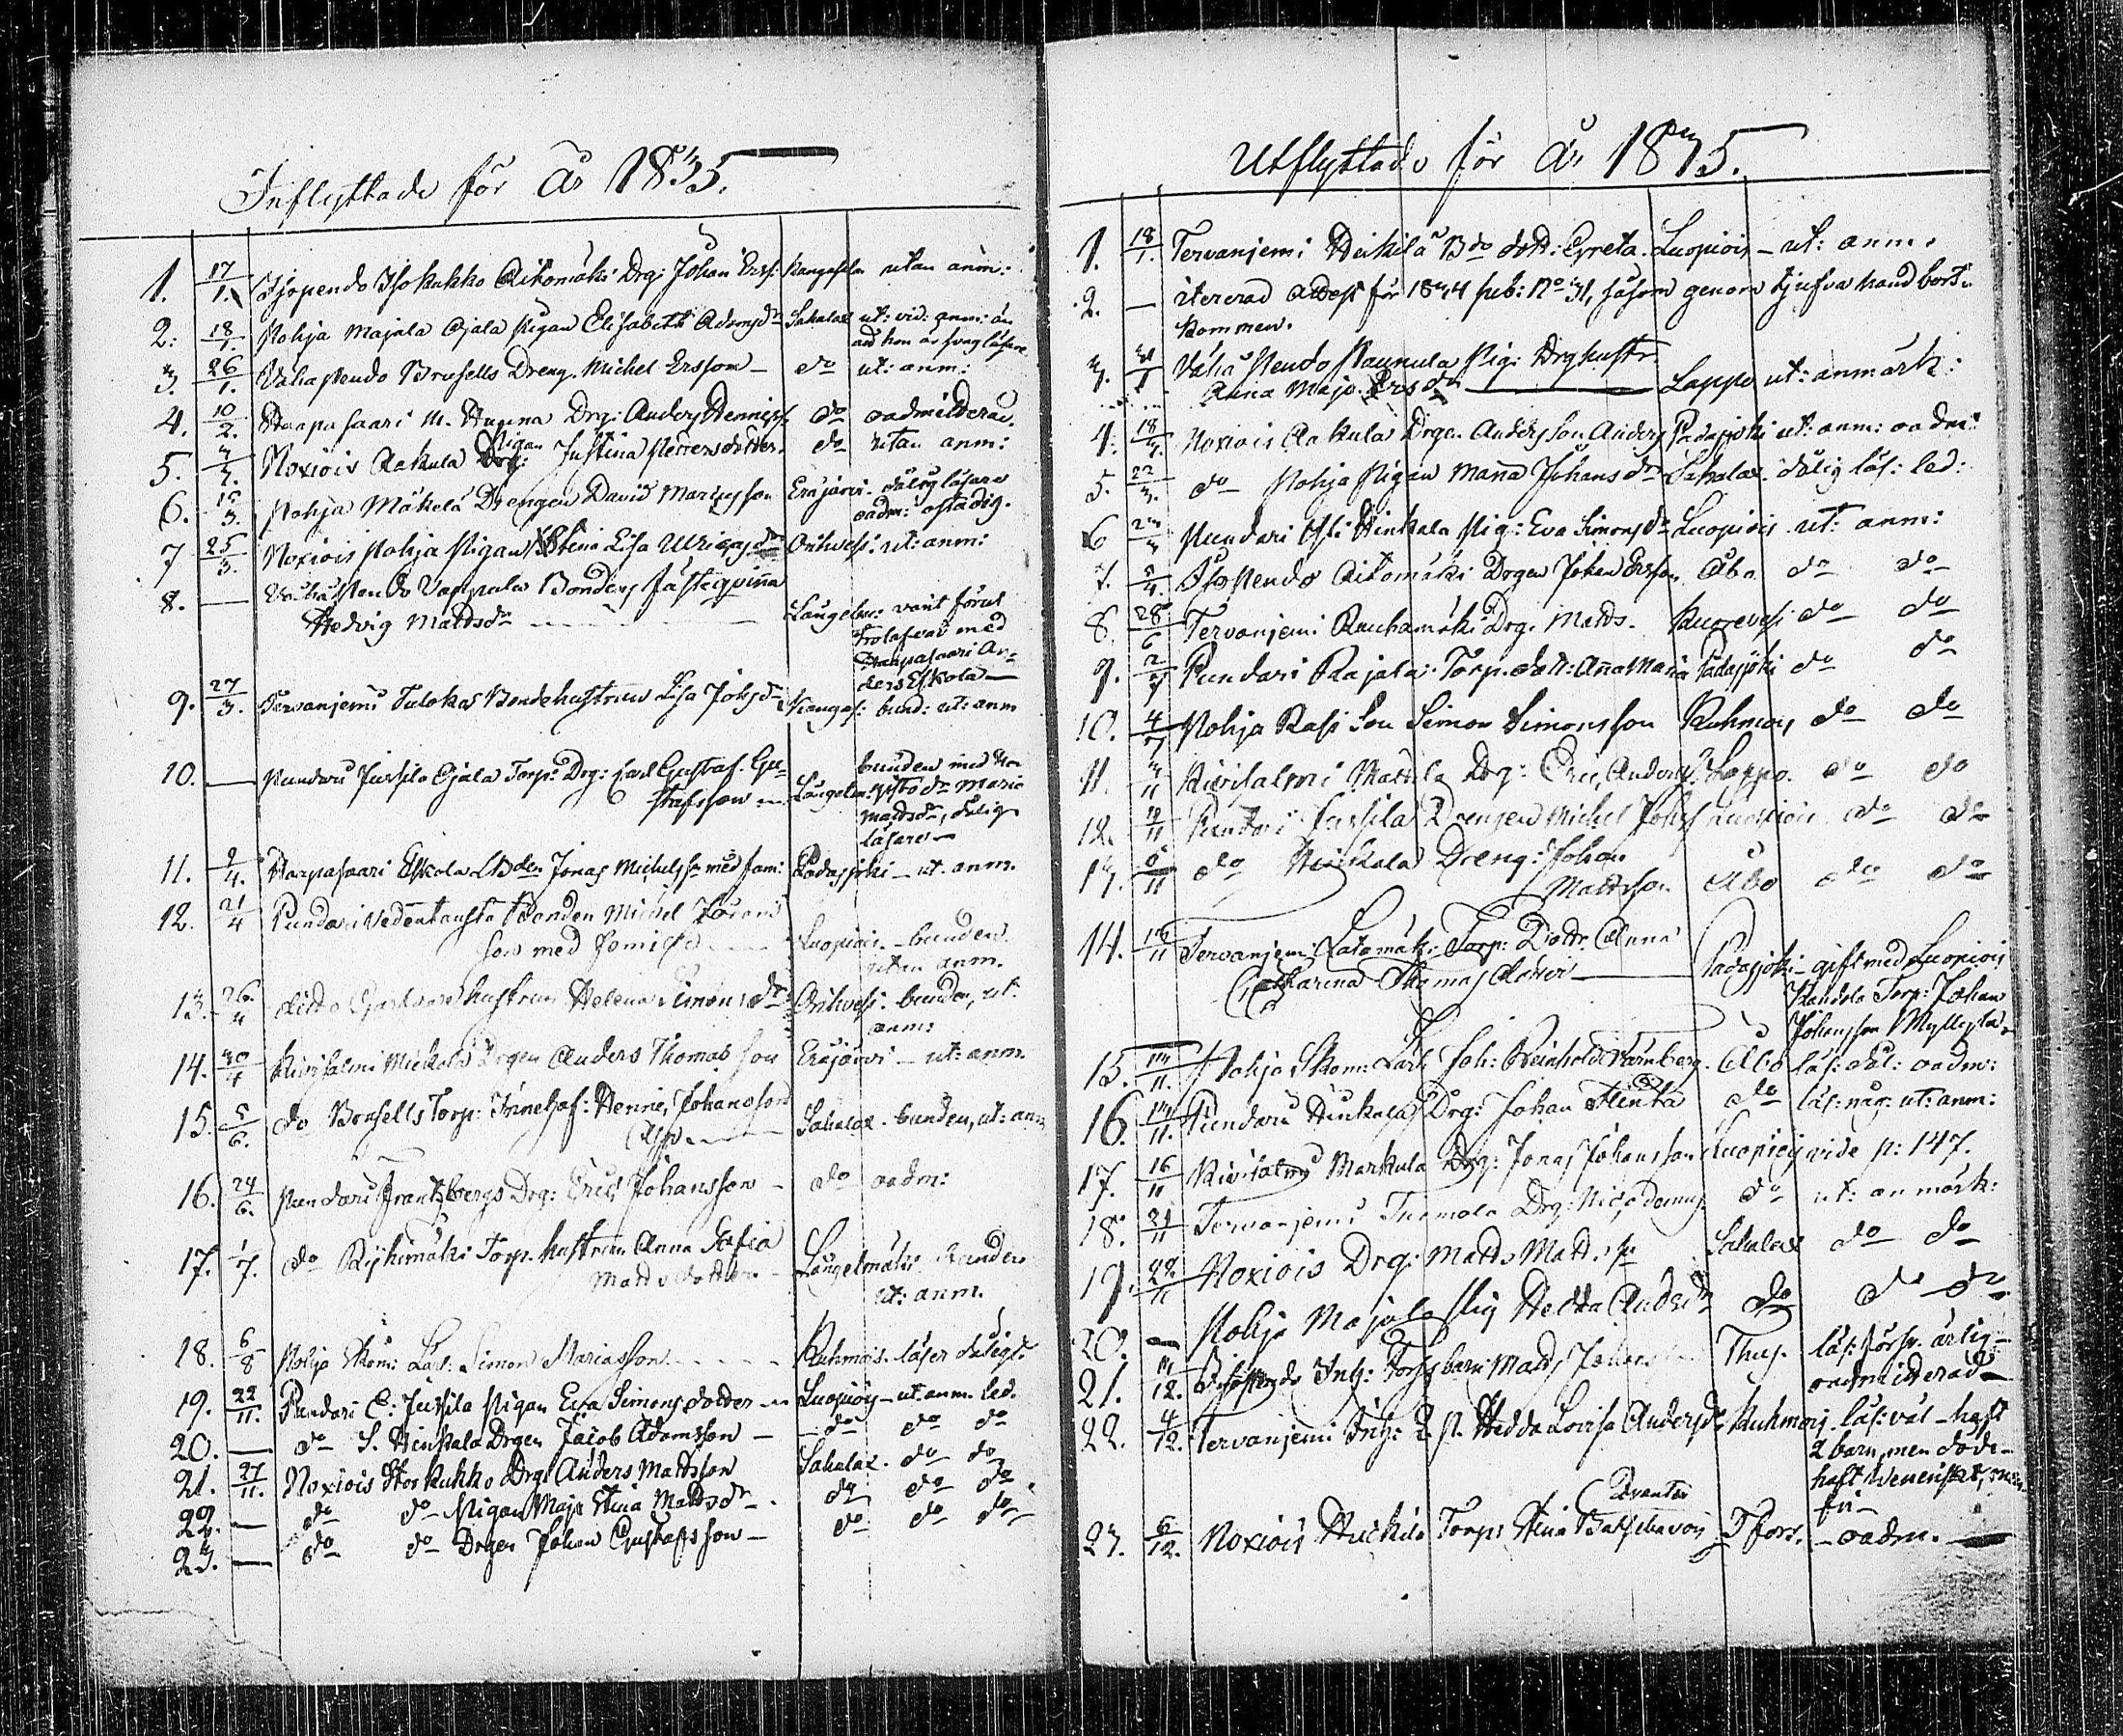 Inflyttade för År 1835.
1. 17/1. Isopendo Isokukko Aitomäki Drg: Johan Ersf: Kangasala utan anm:
2. 18/1. Pohja Majala Ojala Pigan Elisabeth Adamsdr Sahalax ut: vid: anm: än
att hon är svag läsare
3. 26/1. Vähapendo Brusells Dreng. Michel Ersson – do ut: anm:
4. 10/2. Haapasaari M. Drg: Anders do oadmitterad.
5. Noxiois Aakula Pigan Justina Pettersdotter do utan anm:
6. 15/3. Pohja Mäkelä Drengen David Mariæson Eräjärvi. dålig läsare
oadm: ostadig.
7 25/3. Noxiois Pohja Pigan Stina Lisa Ulricasdr Orihvesi. ut: anm:
8. — Vähäpendo Bondens
Hedvig Mattsdr Längelm: varit förut
trolofvad med
Haapasaari An-
ders Eskola —
9. 27/3. Tervanjemi Tulokas Bondehustrun Lisa Johsdr Kangas: bund: ut: anm
10. — Pundari Jussila Ojala Torp: Drg: Carl Gustaf Gu-
stafsson — Längelm: bunden med
Maria
Mattsdr, dålig
läsare —
11. 9/4. Haapasaari Eskola Bden Jonas Michelss: med fam: Padasjoki – ut. anm.
12. 21/4 Pundari Vedentausta Bonden Michel Görans
son med familje Luopiois. – bunden
utan anm.
13. 26/4 ditto hustrun Helena Simonsdr Orihvesi. bunden, ut:
anm:
14. 30/4 Kivisalmi Mickola Drgen Anders Thomasson Eräjärvi – ut: anm.
15. 5/6. do Brusells Torp: Henric Johansson
Sahalax. bunden, ut: anm
16. 24/6. Pundari Frantzbergs Drg: Eric Johansson – do oadm:
17. 1/7. do Ryhimäki Torp. hustrun Anna Sofia
Mattsdotter – Längelmäki bunden
ut: anm.
18. 6/8 Pohja Skom: Lärl: Simon Mariasson Kuhmois. läser dåligt.
19. 22/11. Pundari E: Jussila Pigan Eva Simonsdotter Luopiois – ut. anm. led.
20. — do S. Hinkala Drgen Jacob Adamsson – do do do
21. 27/11. Noxiois Storkukko Drg: Anders Mattsson Sahalax. do do
22. — do do Pigan Maja Stina Mattsdr. do do do
23. — do do Drgen Johan Gustafsson – do do do
Utflyttade för År 1835.
1. 18/1. Tervanjemi Heikilä Bde dott: Greta. Luopiois – ut: anm.
2. — itererad attest för 1834 sub: No 31, såsom genom tjufva hand bort-
kommen.
3. Vähä Pendo Paunula Pig: Drghustr.
Anna Maja Ersdr — Lappo ut: anmärk:
4. 18/3 Noxiois Aakula Drgen Andersson Anders Padasjoki ut: anm: oadm:
5. 22/3. do Pohja Pigan Maria Johansdr Sahalax. dålig läs: led:
6 Pundari Hinkala Pig: Eva Simonsdr Luopiois ut: anm:
7. 5/4. Isopendo Aitomäki Drgen Johan Ersson Åbo do do
8. 28/6 Tervanjemi Rauhamäki Drg. Matts. Kuorevesi do do
9. 2/7 Pundari Rajala: Torp. dott: Anna Maria Padasjoki do do
10. 4/7 Pohja Rasi Son Simon Simonsson Kuhmois do do
11. 3/11 Kivisalmi Mattila Drg: Eric Anders. Lappo. do do
12. Pundari Jussila Drengen Michel Johss Luopiois do do
13. 8/11 do Hinkala Dreng: Johan
Mattsson Åbo do do
14. Tervanjemi Latomäki Torp: Dottr. Anna
Catharina Thomasdotter — Padasjoki – gift med Luopiois
Kandola Torp: Johan
Johansson Myllylä.
15. Pohja Skom: Lärl: Joh: Reinhold Åbo läs: dål: oadm:
16. Pundari Hinkala Drg: Johan Flinta do läs: någ: ut: anm:
17. 16/11 Kivisalmi Markula Drg: Jonas Johansson Luopiois vide p: 147.
18. 21/11 Tervanjemi Tuomola Drg: Nicodemus do ut: anmärk:
19. 22/11 Noxiois Drg: Matts Matts.sn Sahalax do do
20. — Pohja Majala Pig Hedda Andsdr do do do
21. Inh: Matts Thus. läs: försv. ärlig –
oadmitterad –
22. 4/12. Tervanjemi Inh: Hedda Lovisa Andersdr Kuhmois. läs: väl – haft
2 barn, men döde –
haft Venerisk, men
fri –
23. 6/12. Noxiois Heikilä Torp: Stina T:fors. – oadm. —